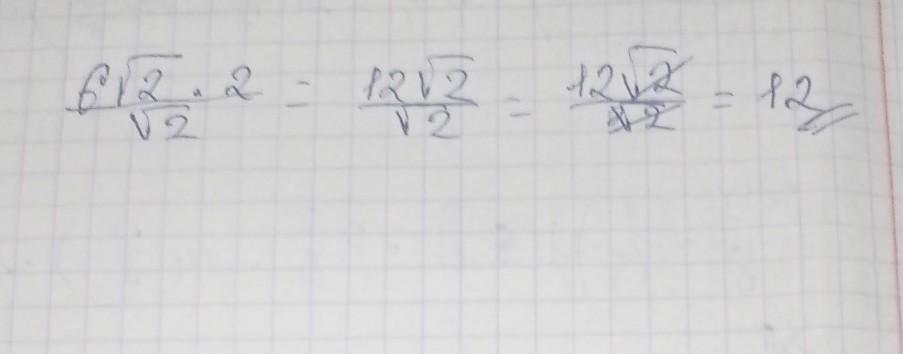 6√2 · 2 / √2 = 12√2 / √2 = 12√2 / √2 = 12